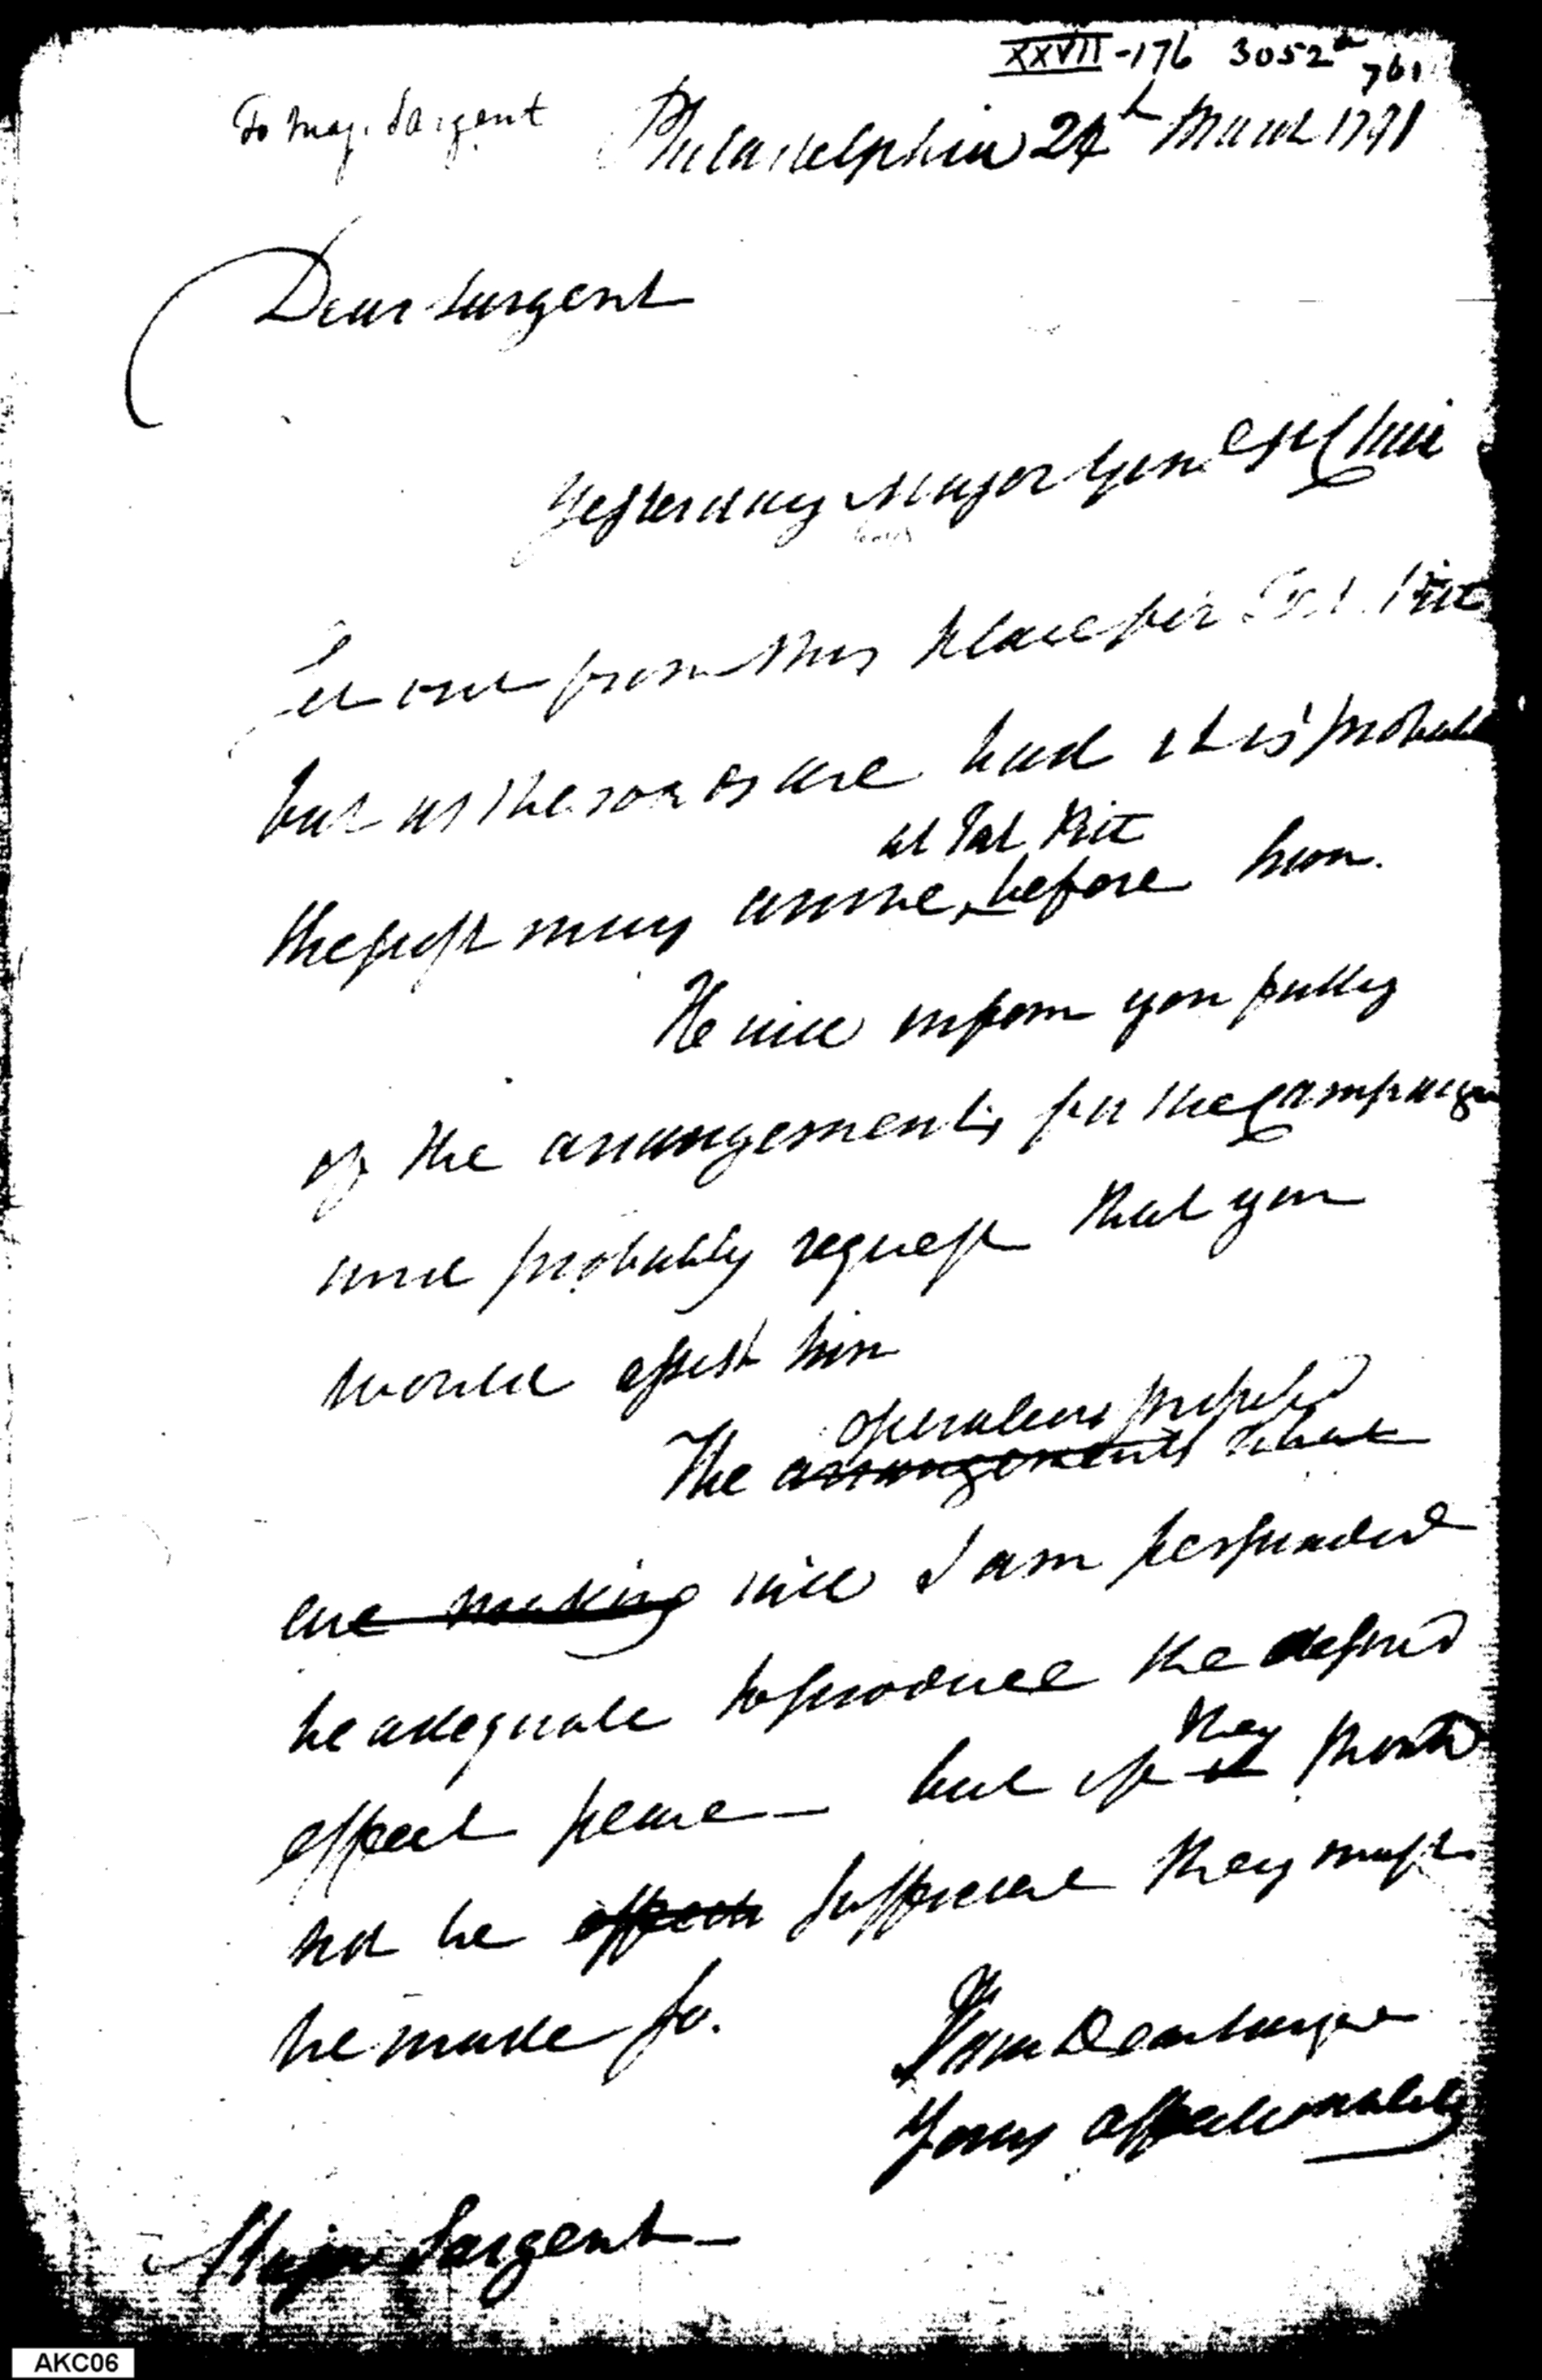 XXVII-176 3052a
761
To Maj. Sargent Philadelphia 24th March 1791
Dear Sargent
Yesterday Major Genl St Clair
set out from this place for Fort Pitt
but as the roads are bad it is probable
at Fort Pitt
the post may arrive before him.
He will inform you fully
of the arrangements for the Campaign
and probably request that you
would assist him
operations proposed
The arrangements which
are making will I am persuaded
be adequate to produce the desired
they
effect peace — but if it should
not be effectu sufficient they must
be made so.
I am Dear Sargent
Yours affectionately
Major Sargent
AKC06